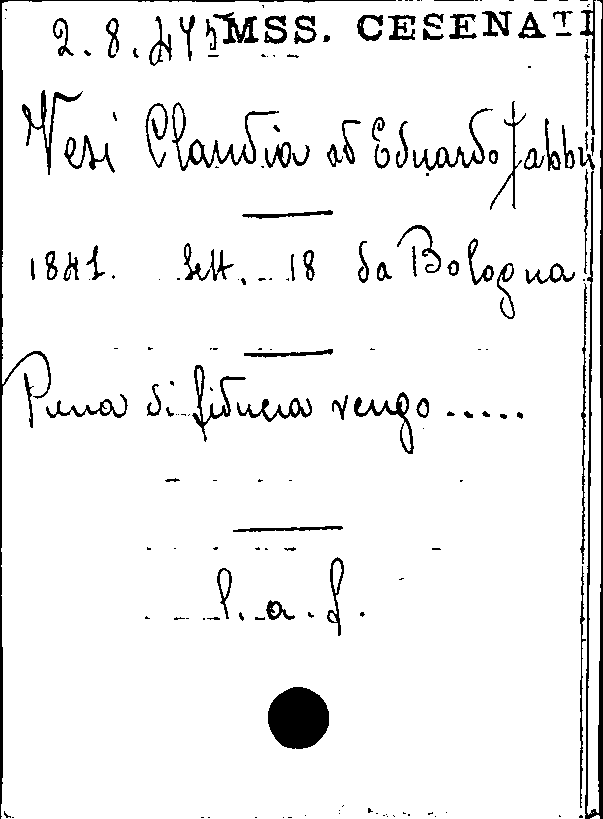 2.8.475 MSS. CESENATI
Vesi Claudia ad Eduardo Fabbri
1841. Sett. 18 da Bologna
Piena di fiducia vengo.....
l. a. f.